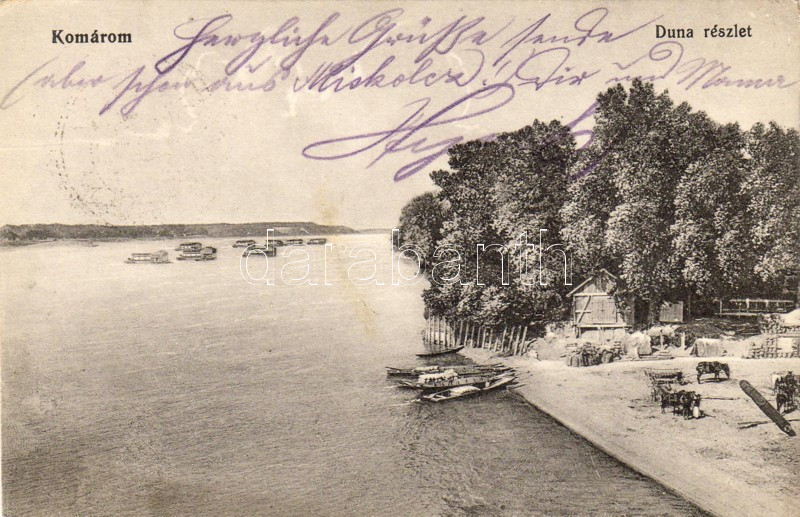 Komárom
Duna részlet
Herzliche Grüße sende
(aber schon aus Miskolcz! Dir und Mama
darabanth